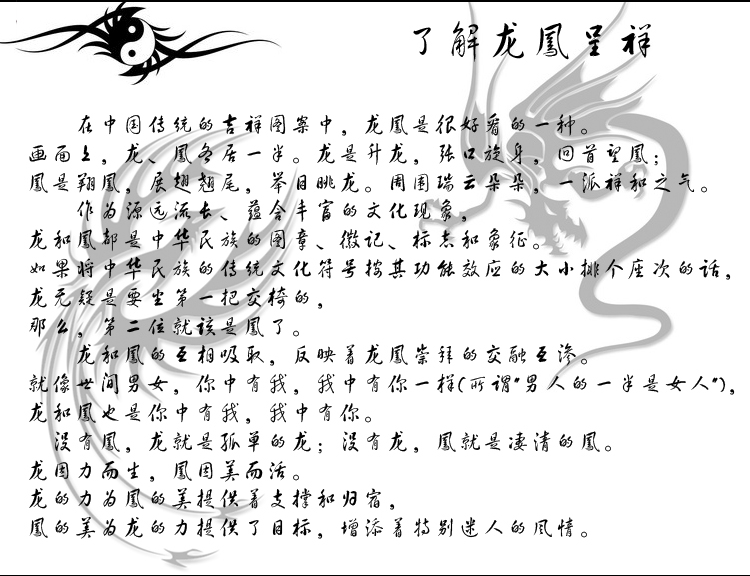 了解龙鳳呈祥
在中国传统的吉祥图案中，龙鳳是很好看的一种。
画面上，龙、鳳各居一半。龙是升龙，张口旋身，回首望鳳；
鳳是翔鳳，展翅翘尾，举目眺龙。周围瑞云朵朵，一派祥和之气。
作为源远流长、蕴含丰富的文化现象，
龙和鳳都是中华民族的图章、徽记、标志和象征。
如果将中华民族的传统文化符号按其功能效应的大小排个座次的话，
龙无疑是要坐第一把交椅的，
那么，第二位就该是鳳了。
龙和鳳的互相吸取，反映着龙鳳崇拜的交融互渗。
就像世间男女，你中有我，我中有你一样(所谓"男人的一半是女人")，
龙和鳳也是你中有我，我中有你。
没有鳳，龙就是孤单的龙；没有龙，鳳就是凄清的鳳。
龙因力而生，鳳因美而活。
龙的力为鳳的美提供着支撑和归宿，
鳳的美为龙的力提供了目标，增添着特别迷人的风情。